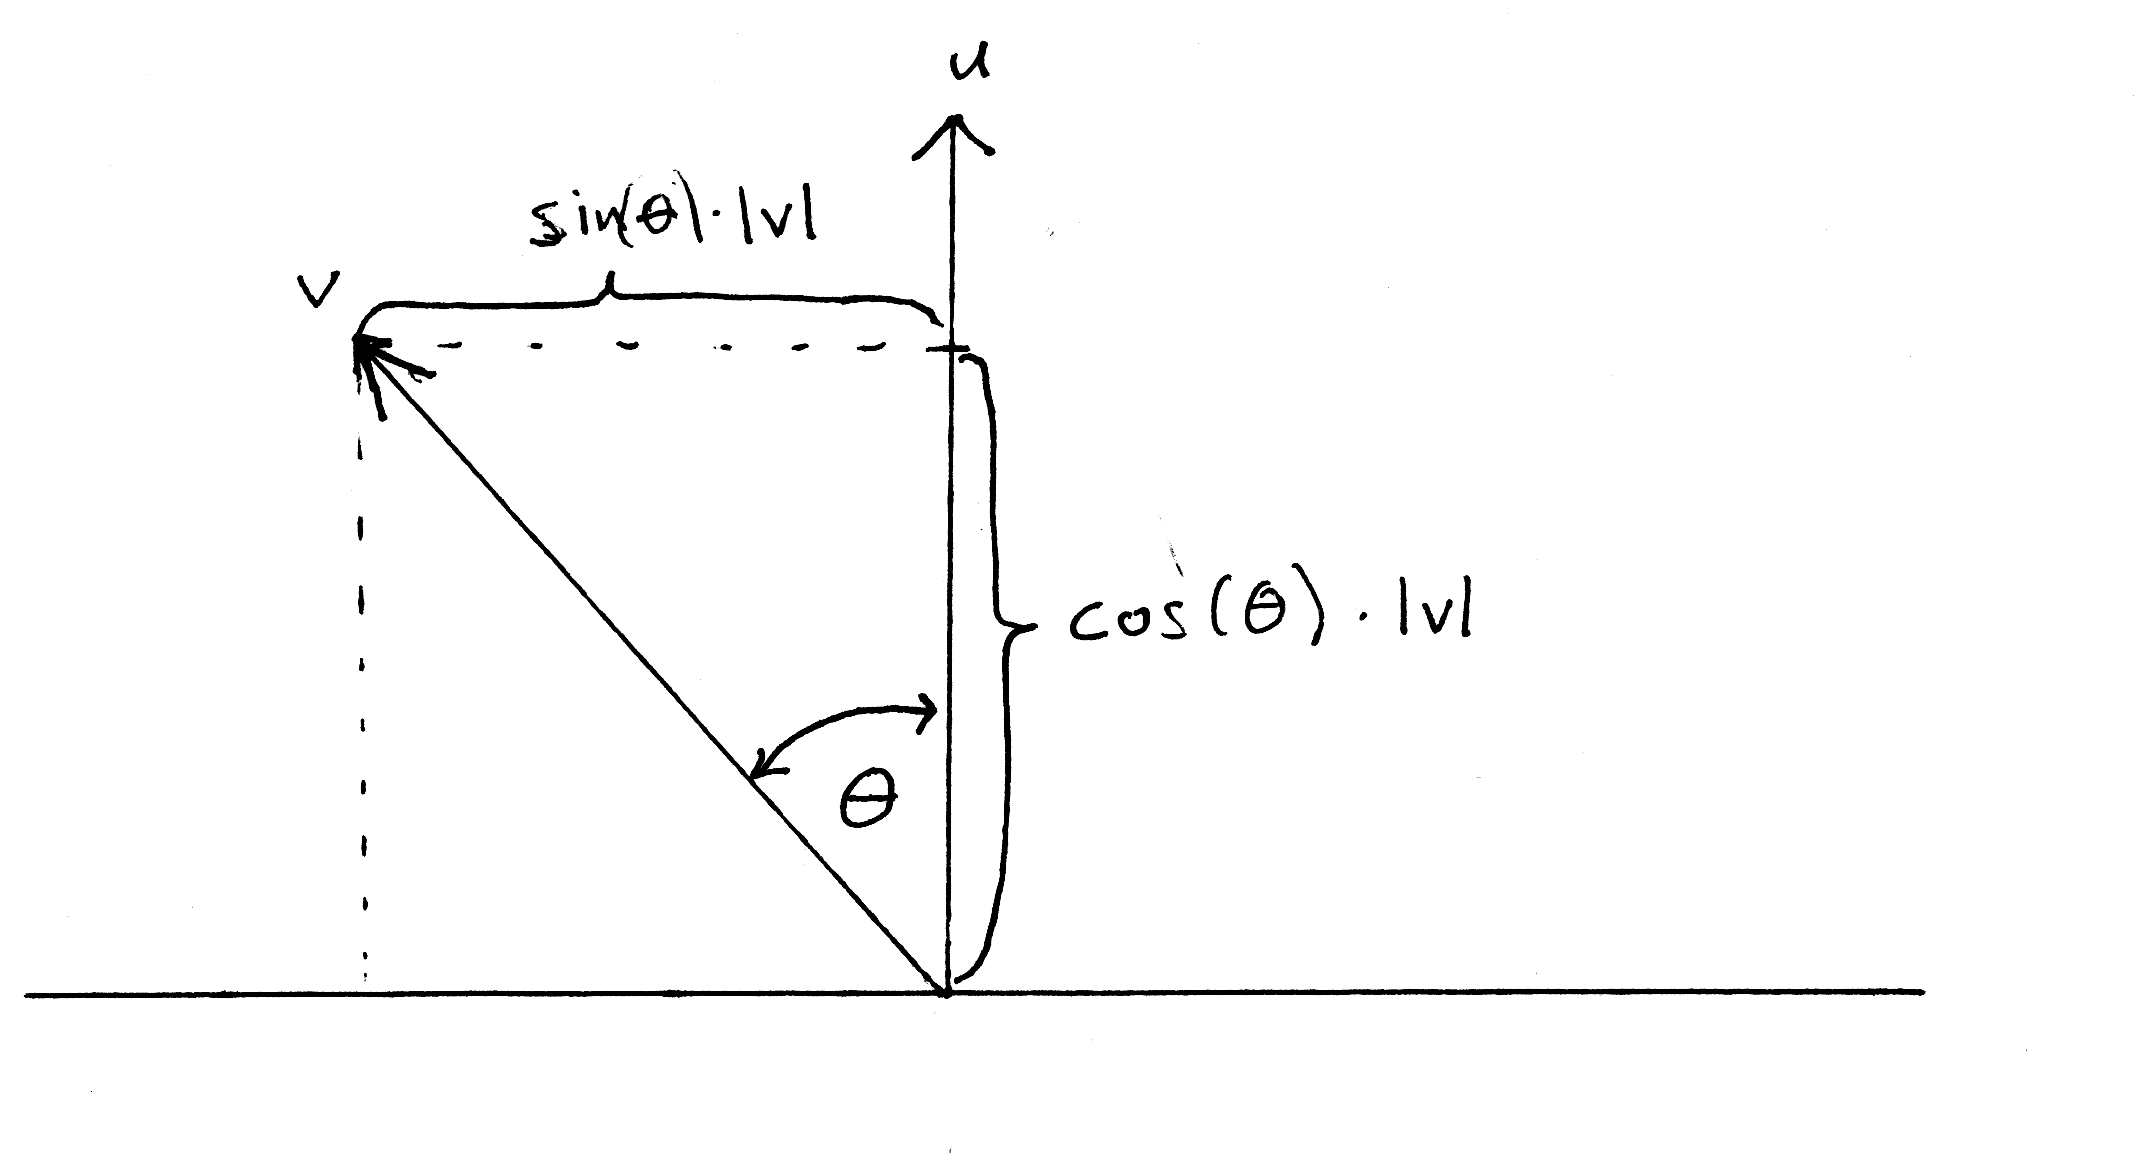 u
sin(θ)·|v|
v
cos(θ)·|v|
θ